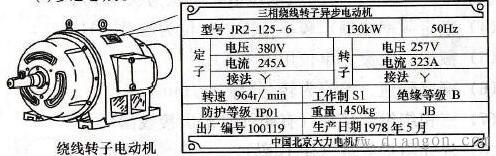 三相绕线转子异步电动机
型号 JR2-125-6 130kW 50Hz
定子 电压 380V 转子 电压 257V
电流 245A 电流 323A
接法 Y 接法 Y
转速 964r/min 工作制 S1 绝缘等级 B
防护等级 IP01 重量 1450kg JB
出厂编号 100119 生产日期 1978年5月
中国北京大力电机厂
绕线转子电动机